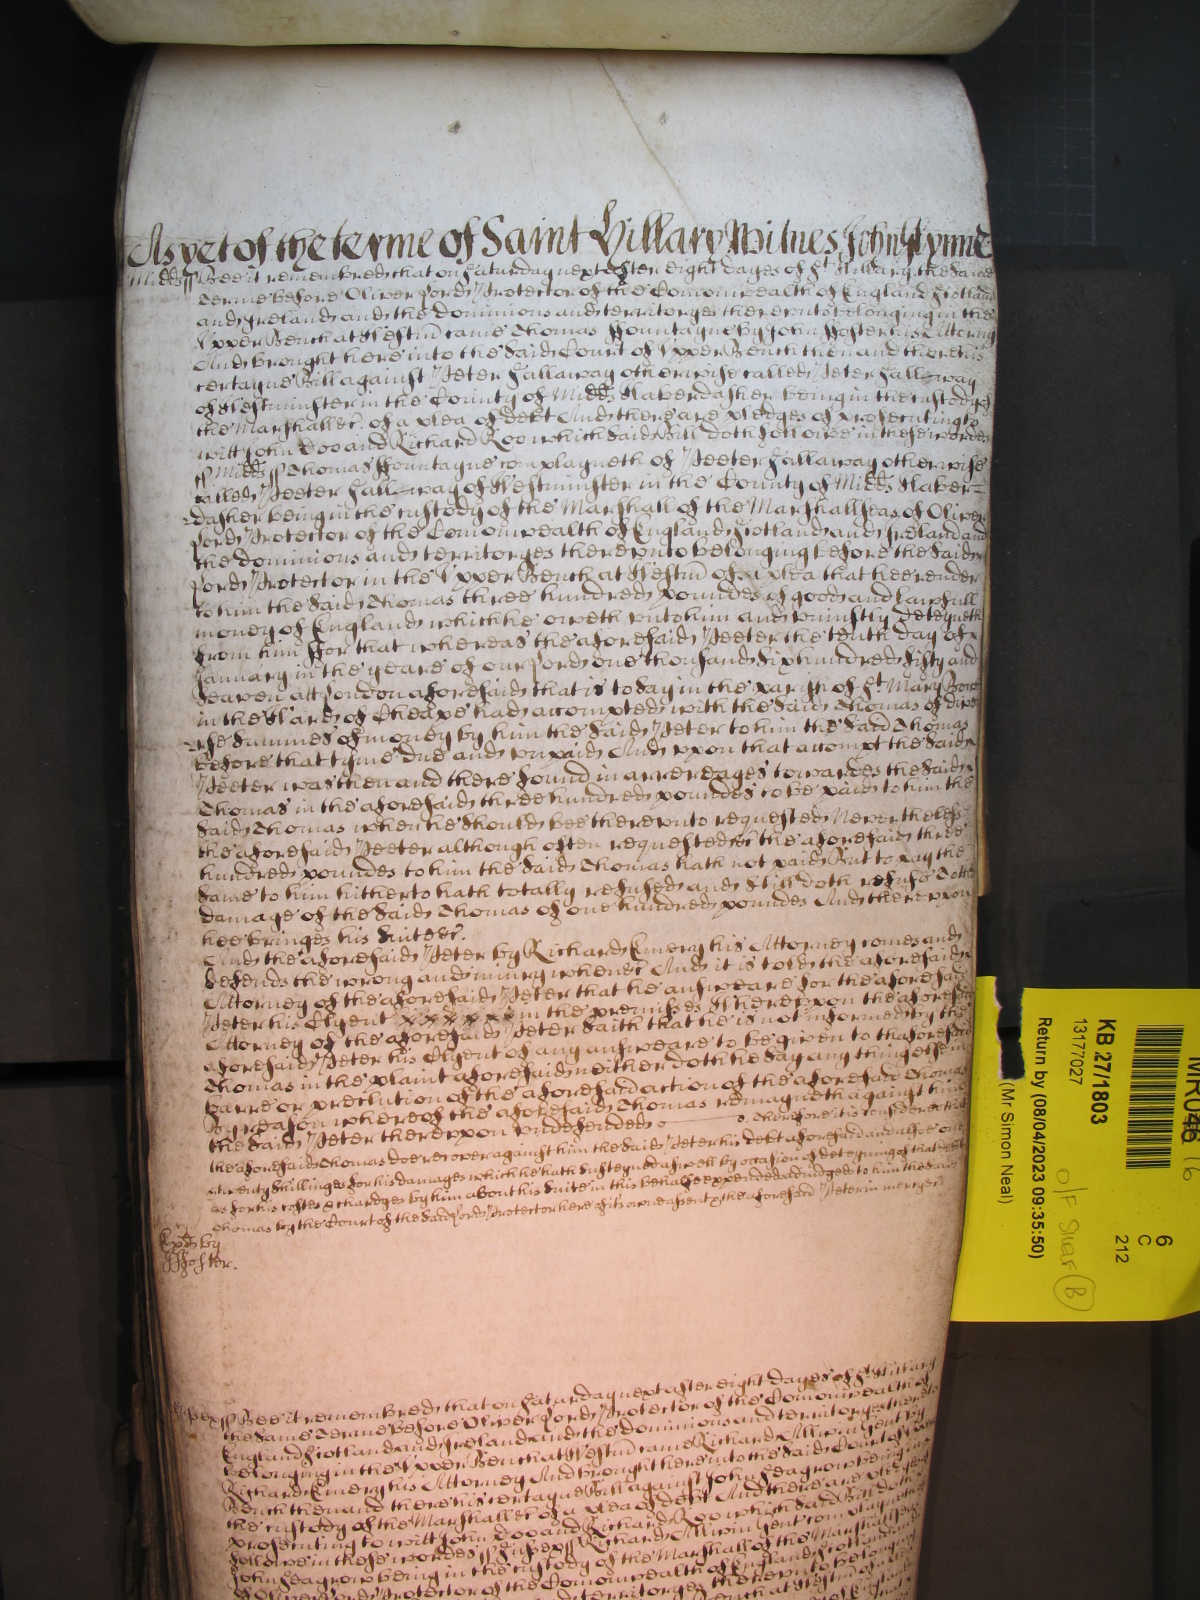 As yet of the terme of Saint Hillary Witnes John Glynne
Midds ss Bee it remembred that on Saturday next after eight dayes of St Hillary the same
terme before Oliver Lord Protector of the Comonwealth of England Scotland
and Ireland and the dominions and territoryes thereunto belonging in the
Upper Bench at Westm came Thomas Fountayne by John Foster his Attorny
And brought here into the said Court of Upper Bench then and there his
certayne Bill against Peter Fallaway otherwise called Peter Fallaway
of Westminster in the County of Midds Haberdasher being in the custody of
the Marshall &c of a plea of debt And there are pledges of prosecuting to
witt John Doo and Richard Roo which said Bill doth followe in these wordes
ss Midds ss Thomas Fountayne complayneth of Peeter Fallaway otherwise
called Peeter Fallaway of Westminster in the County of Midds Haber=
dasher being in the custody of the Marshall of the Marshallsea of Oliver
Lord Protector of the Comonwealth of England Scotland and Ireland and
the dominions and territoryes thereunto belonging before the said
Lord Protector in the Upper Bench at Westm of a plea that hee render
to him the said Thomas three hundred poundes of good and lawfull
money of England which he oweth unto him and uniustly deteyneth
from him For that whereas the aforesaid Peeter the tenth day of
January in the yeare of our Lord one thousand six hundred fifty and
seaven att London aforesaid that is to say in the parish of St Mary Bowe
in the Ward of Cheape had accompted with the said Thomas of dive
rse summes of money by him the said Peter to him the said Thomas
before that tyme due and unpaid And uppon that accompt the said
Peeter was then and there found in arrerages towardes the said
Thomas in the aforesaid three hundred poundes to be paid to him the
said Thomas when he should bee thereunto requested Neverthelesse
the aforesaid Peeter although often requested &c the aforesaid three
hundred poundes to him the said Thomas hath not paid But to pay the
same to him hitherto hath totally refused and still doth refuse To the
damage of the said Thomas of one hundred poundes And thereupon
hee bringes his suite &c.
And the aforesaid Peter by Richard Emery his Attorney comes and
defends the wrong and iniury when &c And it is told the aforesaid
Attorney of the aforesaid Peter that he answeare for the aforesaid
Peter his Clyent in the premisses Whereupon the aforesaid
Attorney of the aforesaid Peter saith that he is not informed by the
aforesaid Peter his Clyent of any answeare to be given to thaforesaid
Thomas in the plaint aforesaid neither doth he say any thing else in
barre or preclution of the aforesaid action of the aforesaid Thomas
by reason whereof the aforesaid Thomas remayneth against him
the said Peter thereupon undefended Therefore it is considered that
the aforesaid Thomas doe recover against him the said Peter his debt aforesaid and alsoe one
twenty shillinges for his damages which he hath susteyned aswell by occasion of deteyning of that debt
as for his costes & chardges by him about his suite in this behalfe expended adiudged to him the said
Thomas by the Court of the said Lord Protector here of its owne assent & the aforesaid Peter in mercy &c
Exd by
Foster.
Sussex ss Bee it remembred that on Saturday next after eight dayes of St Hillary
the same Terme before Oliver Lord Protector of the Comonwealth of
England Scotland and Ireland and the dominions and territoryes thereto
belonging in the Upper Bench at Westm came Richard Allwin Gent by
Richard Emery his Attorney And brought here into the said Court of Upper
Bench then and there his certayne Bill against John Seagrow being in
the custody of the Marshall &c of a plea of debt And there are pledges of
prosecuting to witt John Doo and Richard Roo which said Bill doth
followe in these wordes ss Sussex ss Richard Allwin Gent complayneth of
John Seagrow being in the custody of the Marshall of the Marshallsea
of Oliver Lord Protector of the Comonwealth of England Scotland and
territoryes thereunto belonging
Bench at Westm of a
KB 27/1803
13177027
Return by (08/04/2023 09:35:50)
(Mr Simon Neal)
6
C
212
O/F Shelf B